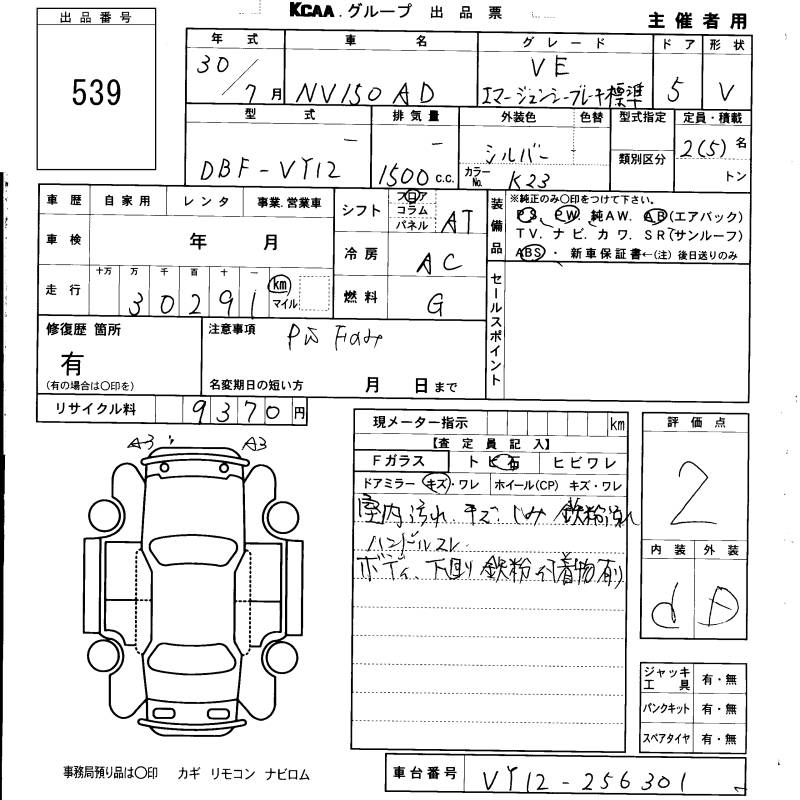 KCAA.グループ 出品票
主催者用
出品番号
539
年式 車名 グレード ドア 形状
30/7月 NV150 AD VE エマージェンシーブレーキ標準 5 V
型式 排気量 外装色 色替 型式指定 定員・積載
DBF-VY12 1500c.c. シルバー カラーNo. K23 類別区分 2(5)名 トン
車歴 自家用 レンタ 事業.営業車
車検 年 月
走行 十万 万 千 百 十 一
30291 km マイル
シフト フロア コラム パネル AT
冷房 AC
燃料 G
装備品 ※純正のみ〇印をつけて下さい。
PS、PW、純AW、AB(エアバック)
TV、ナビ、カワ、SR(サンルーフ)
ABS・新車保証書←(注)後日送りのみ
セールスポイント
修復歴 箇所
有
(有の場合は〇印を)
注意事項
名変期日の短い方 月 日まで
リサイクル料 9370円
現メーター指示 km
【査定員記入】
Fガラス トビ石 ヒビワレ
ドアミラー キズ・ワレ ホイール(CP) キズ・ワレ
室内汚れ.キズ.しみ 鉄粉汚れ
ハンドルスレ.
ボディ、下回り鉄粉付着物有り
評価点
2
内装 外装
d D
A3 A3
ジャッキ工具 有・無
パンクキット 有・無
スペアタイヤ 有・無
事務局預り品は〇印 カギ リモコン ナビロム
車台番号 VY12-256301